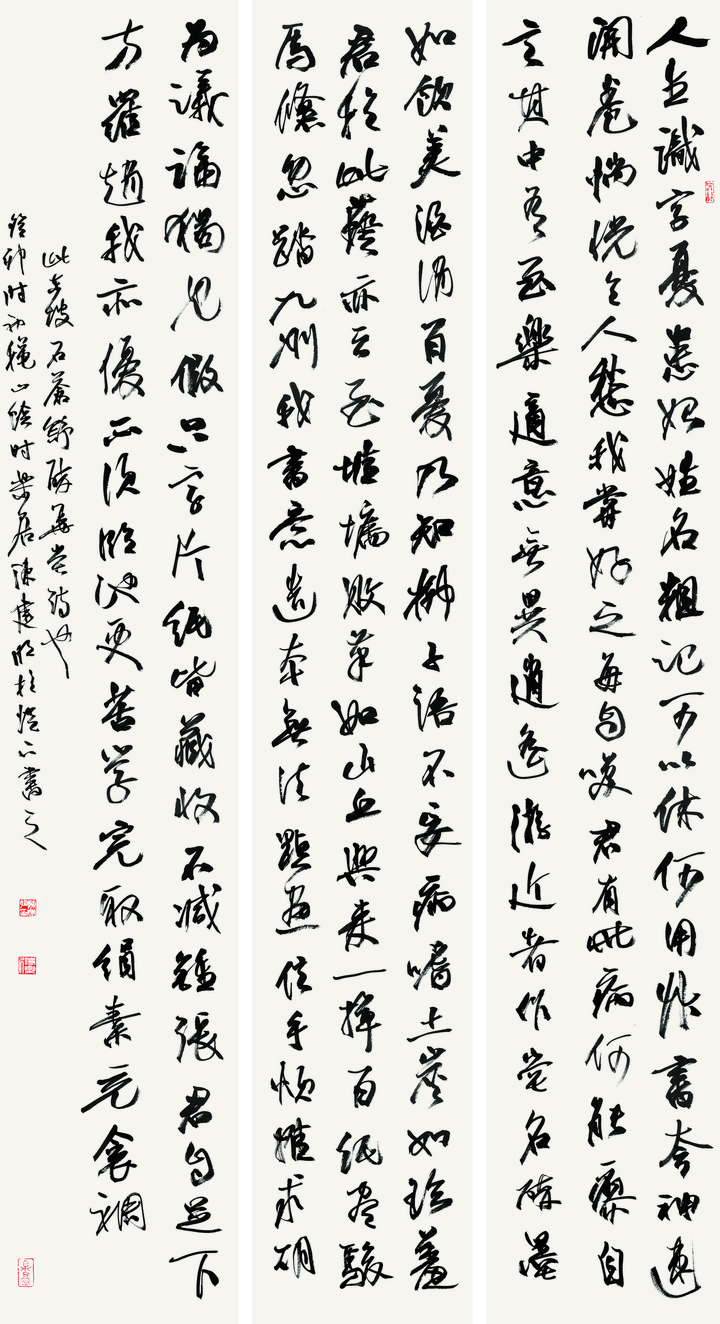 人生識字憂患始姓名粗記可以休何用草書夸神速
開卷惝怳令人愁我嘗好之每自笑君有此病何能瘳自
言其中有至樂適意無異逍遙游近者作堂名醉墨
如飲美酒消百憂乃知柳子語不妄病嗜土炭如珍羞
君於此藝亦云至堆墻敗筆如山丘興來一揮百紙盡駿
馬倏忽踏九州我書意造本無法點畫信手煩推求胡
為議論獨見假只字片紙皆藏收不減鍾張君自足下
方羅趙我亦優不須臨池更苦學完取絹素充衾裯
此东坡石蒼舒醉墨堂詩也
癸卯時初山陰時居陳建明於燈下書之